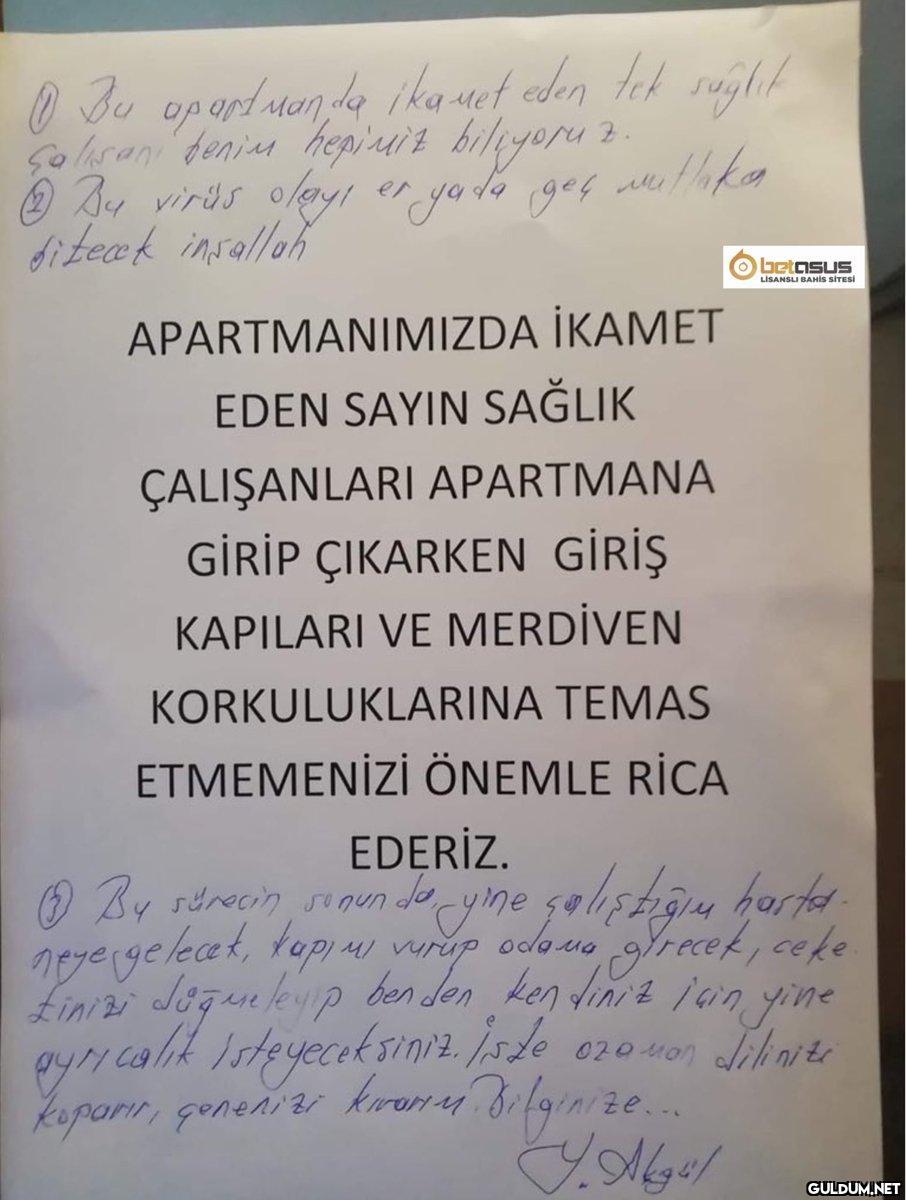 ① Bu apartmanda ikamet eden tek sağlık
çalışanı benim hepimiz biliyoruz.
② Bu virüs olayı er yada geç mutlaka
bitecek inşallah
betasus
LİSANSLI BAHİS SİTESİ
APARTMANIMIZDA İKAMET
EDEN SAYIN SAĞLIK
ÇALIŞANLARI APARTMANA
GİRİP ÇIKARKEN GİRİŞ
KAPILARI VE MERDİVEN
KORKULUKLARINA TEMAS
ETMEMENİZİ ÖNEMLE RİCA
EDERİZ.
③ Bu sürecin sonunda, yine çalıştığım hasta-
neye gelecek, kapımı vurup odama girecek, ceke-
tinizi düğmeleyip benden kendiniz için yine
ayrıcalık isteyeceksiniz. İşte ozaman dilinizi
koparır, çenenizi kırarım. Bilginize...
Y. Akgül
GULDUM.NET